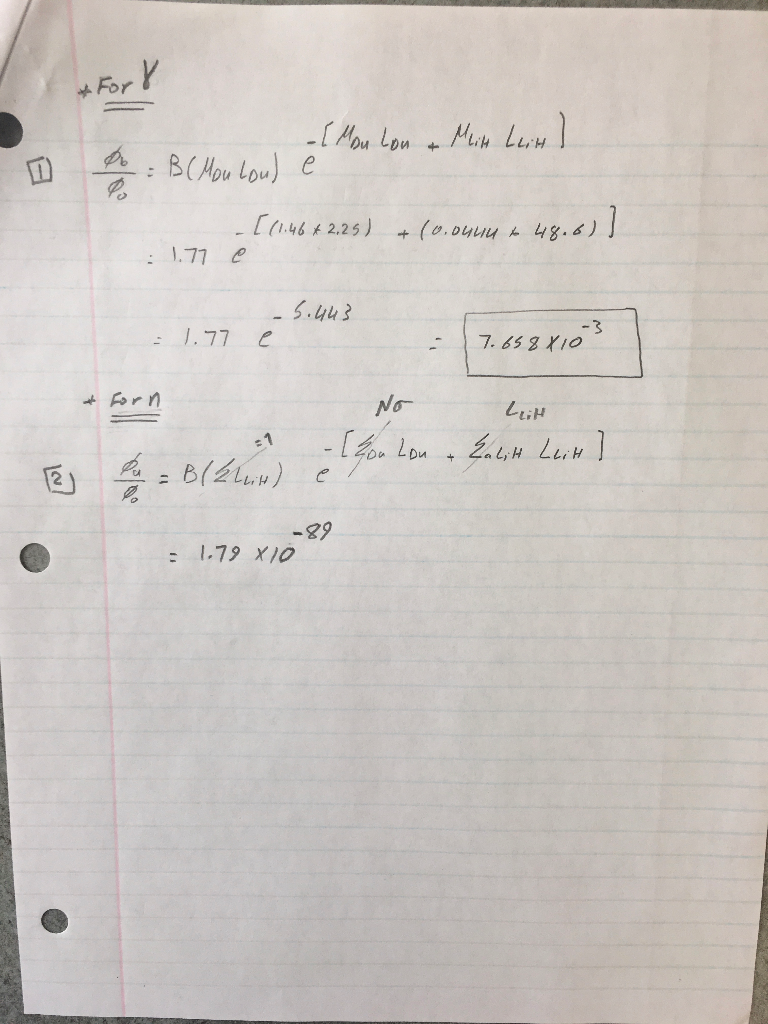 + For γ
[1] Φb/Φo = B(μDu LDu) e^-[μDu LDu + μLiH LLiH]
= 1.77 e^-[(1.46 × 2.25) + (0.0444 × 48.6)]
= 1.77 e^-5.443 = 7.658 × 10^-3
+ For n
Nσ LLiH
[2] Φu/Φo = B(ΣLLiH)=1 e^-[ΣDu LDu + ΣaLiH LLiH]
= 1.79 × 10^-89